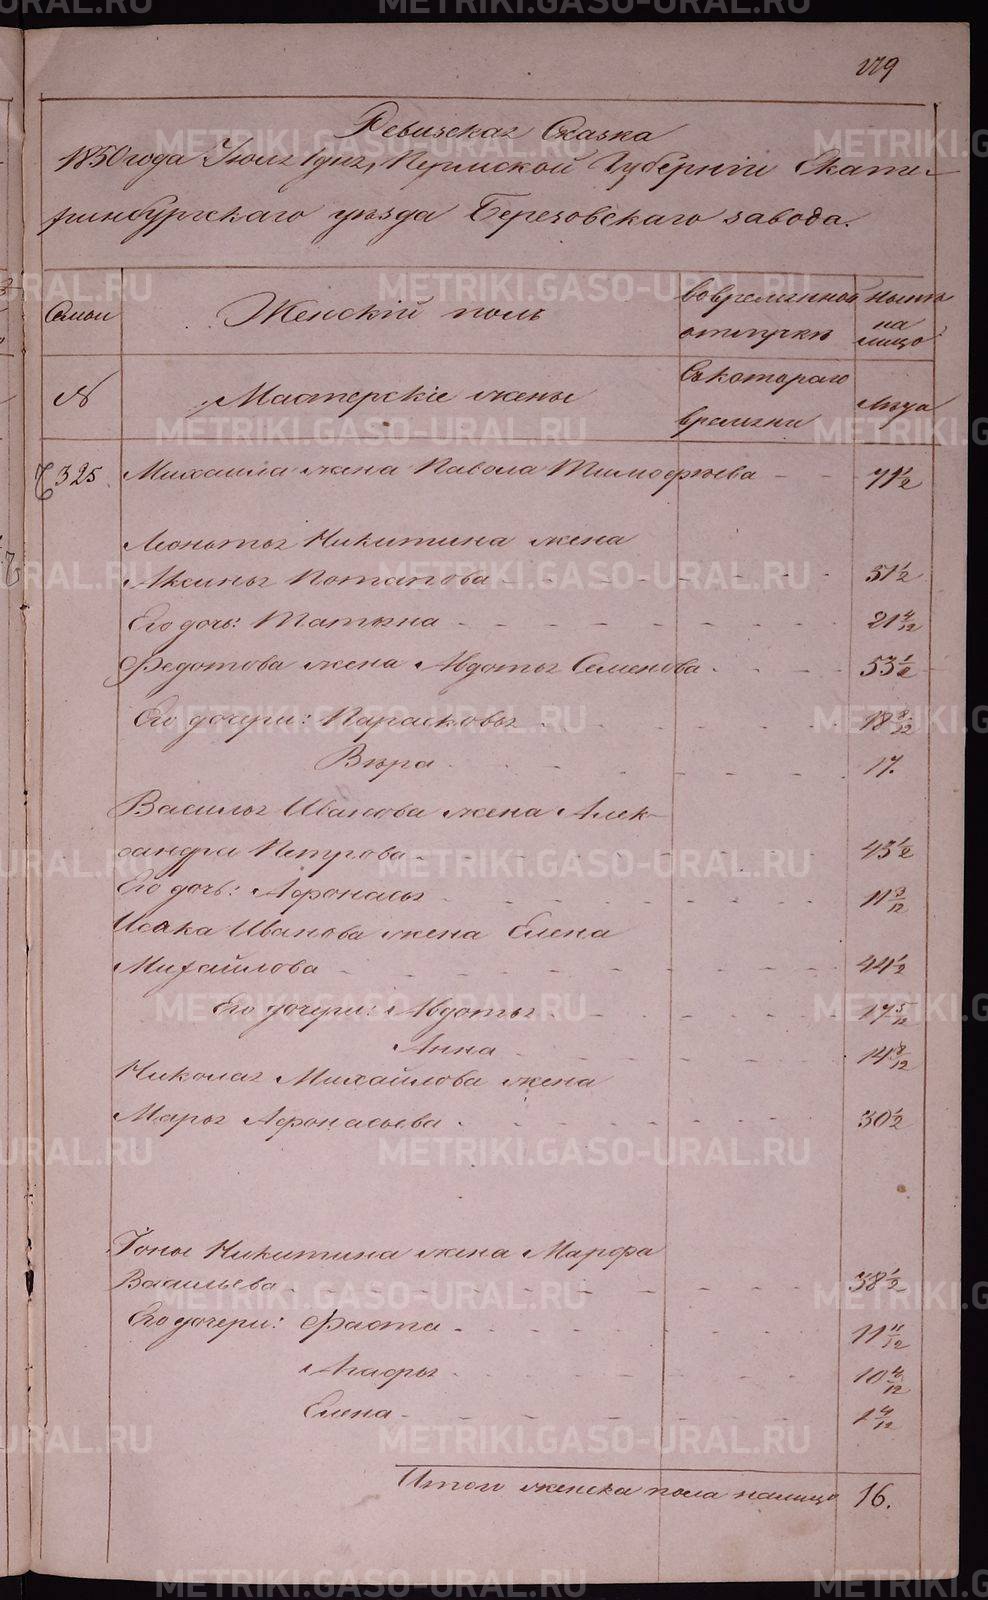 Ревизская Сказка
1850 года Іюля дня, Пермской Губерніи Екате-
ринбургскаго уѣзда Березовскаго завода.
Семьи
Женскій полъ
во временной отлучкѣ
нынѣ на лицо
№
Мастерскіе жены
Съ котораго времени
Лѣта
325
Михаила жена Павола Тимофѣева 71 1/2
Леонтья Никитина жена
Аксинья Потапова
Его дочь: Татьяна 21 4/12
Федотова жена Авдотья Семенова 53 1/2
Его дочери: Парасковья
Вѣра 17.
Василья Иванова жена Алек-
сандра Петрова 43 1/2
Его дочь: Афонасья
Исака Иванова жена Елена
Михайлова 44 1/2
Его дочери: Авдотья 17 5/12
Анна
Николая Михайлова жена
Марья Афонасьева 30 1/2
Іоны Никитина жена Марфа
Васильева 38 1/2
Его дочери: Фаота 11 11/12
Агафья
Елена 1 4/12
Итого женска пола налицо 16.
METRIKI.GASO-URAL.RU